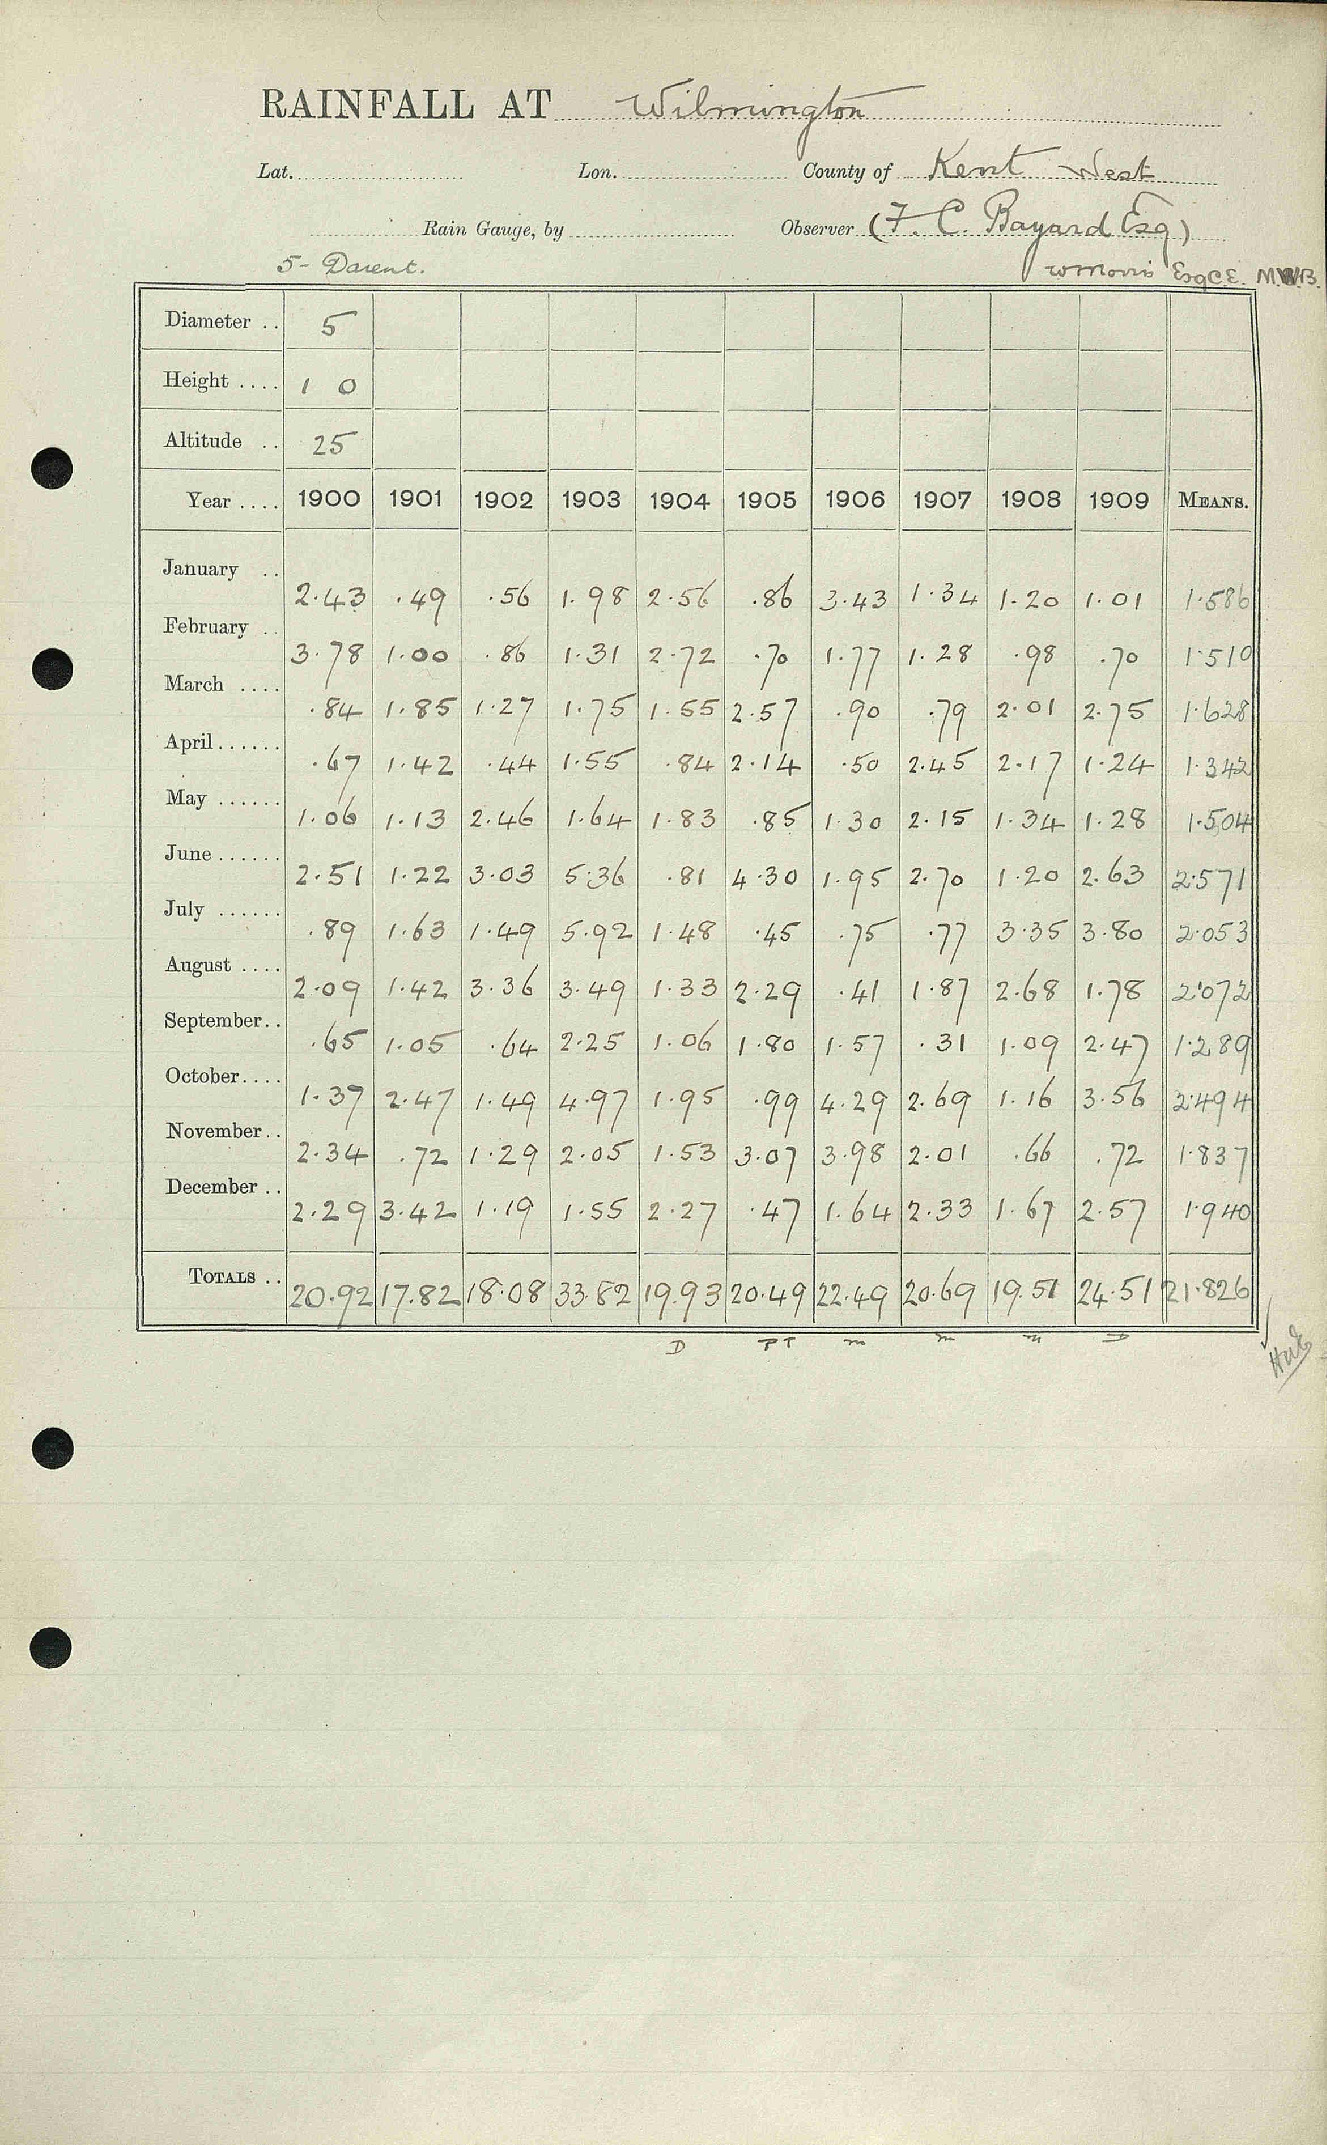 RAINFALL AT Wilmington
Lat. Lon. County of Kent West
Rain Gauge, by Observer (F. C. Bayard Esq)
5- Darent. W Morris Esq C.E. M.W.B.
Diameter .. 5
Height .... 1 0
Altitude .. 25
Year .... 1900 1901 1902 1903 1904 1905 1906 1907 1908 1909 MEANS.
January .. 2.43 .49 .56 1.98 2.56 .86 3.43 1.34 1.20 1.01 1.586
February .. 3.78 1.00 .86 1.31 2.72 .70 1.77 1.28 .98 .70 1.510
March .... .84 1.85 1.27 1.75 1.55 2.57 .90 .79 2.01 2.75 1.628
April ...... .67 1.42 .44 1.55 .84 2.14 .50 2.45 2.17 1.24 1.342
May ...... 1.06 1.13 2.46 1.64 1.83 .85 1.30 2.15 1.34 1.28 1.504
June ...... 2.51 1.22 3.03 5.36 .81 4.30 1.95 2.70 1.20 2.63 2.571
July ...... .89 1.63 1.49 5.92 1.48 .45 .75 .77 3.35 3.80 2.053
August .... 2.09 1.42 3.36 3.49 1.33 2.29 .41 1.87 2.68 1.78 2.072
September.. .65 1.05 .64 2.25 1.06 1.80 1.57 .31 1.09 2.47 1.289
October.... 1.37 2.47 1.49 4.97 1.95 .99 4.29 2.69 1.16 3.56 2.494
November.. 2.34 .72 1.29 2.05 1.53 3.07 3.98 2.01 .66 .72 1.837
December .. 2.29 3.42 1.19 1.55 2.27 .47 1.64 2.33 1.67 2.57 1.940
TOTALS .. 20.92 17.82 18.08 33.82 19.93 20.49 22.49 20.69 19.51 24.51 21.826
D PT m m M D